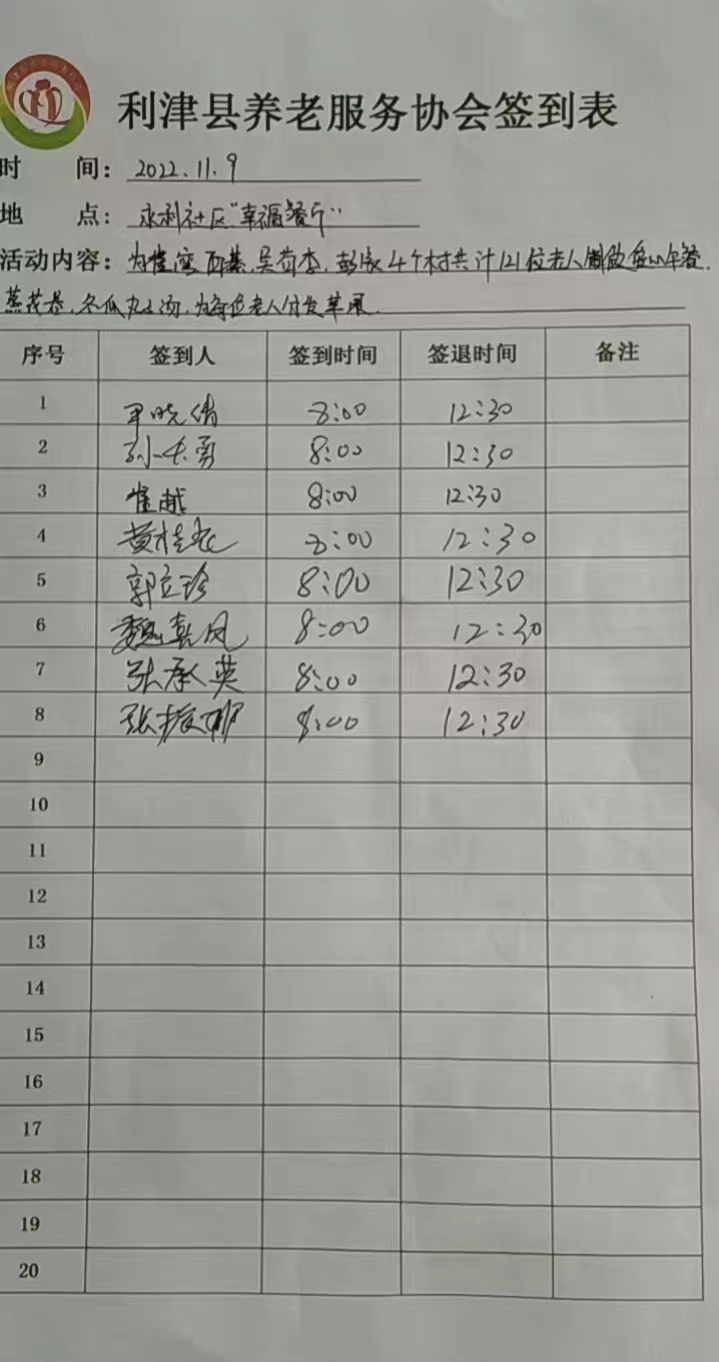 利津县养老服务协会签到表
时 间: 2022.11.9
地 点: 永利社区"幸福餐厅"
活动内容: 为崔 4个村共计121位老人制做 午餐.
蒸花卷.冬瓜丸子汤.为每位老人分发苹果.
序号 签到人 签到时间 签退时间 备注
1 晓倩 8:00 12:30
2 孙长勇 8:00 12:30
3 崔越 8:00 12:30
4 黄桂花 8:00 12:30
5 郭立珍 8:00 12:30
6 魏 凤 8:00 12:30
7 张承英 8:00 12:30
8 张振 8:00 12:30
9
10
11
12
13
14
15
16
17
18
19
20